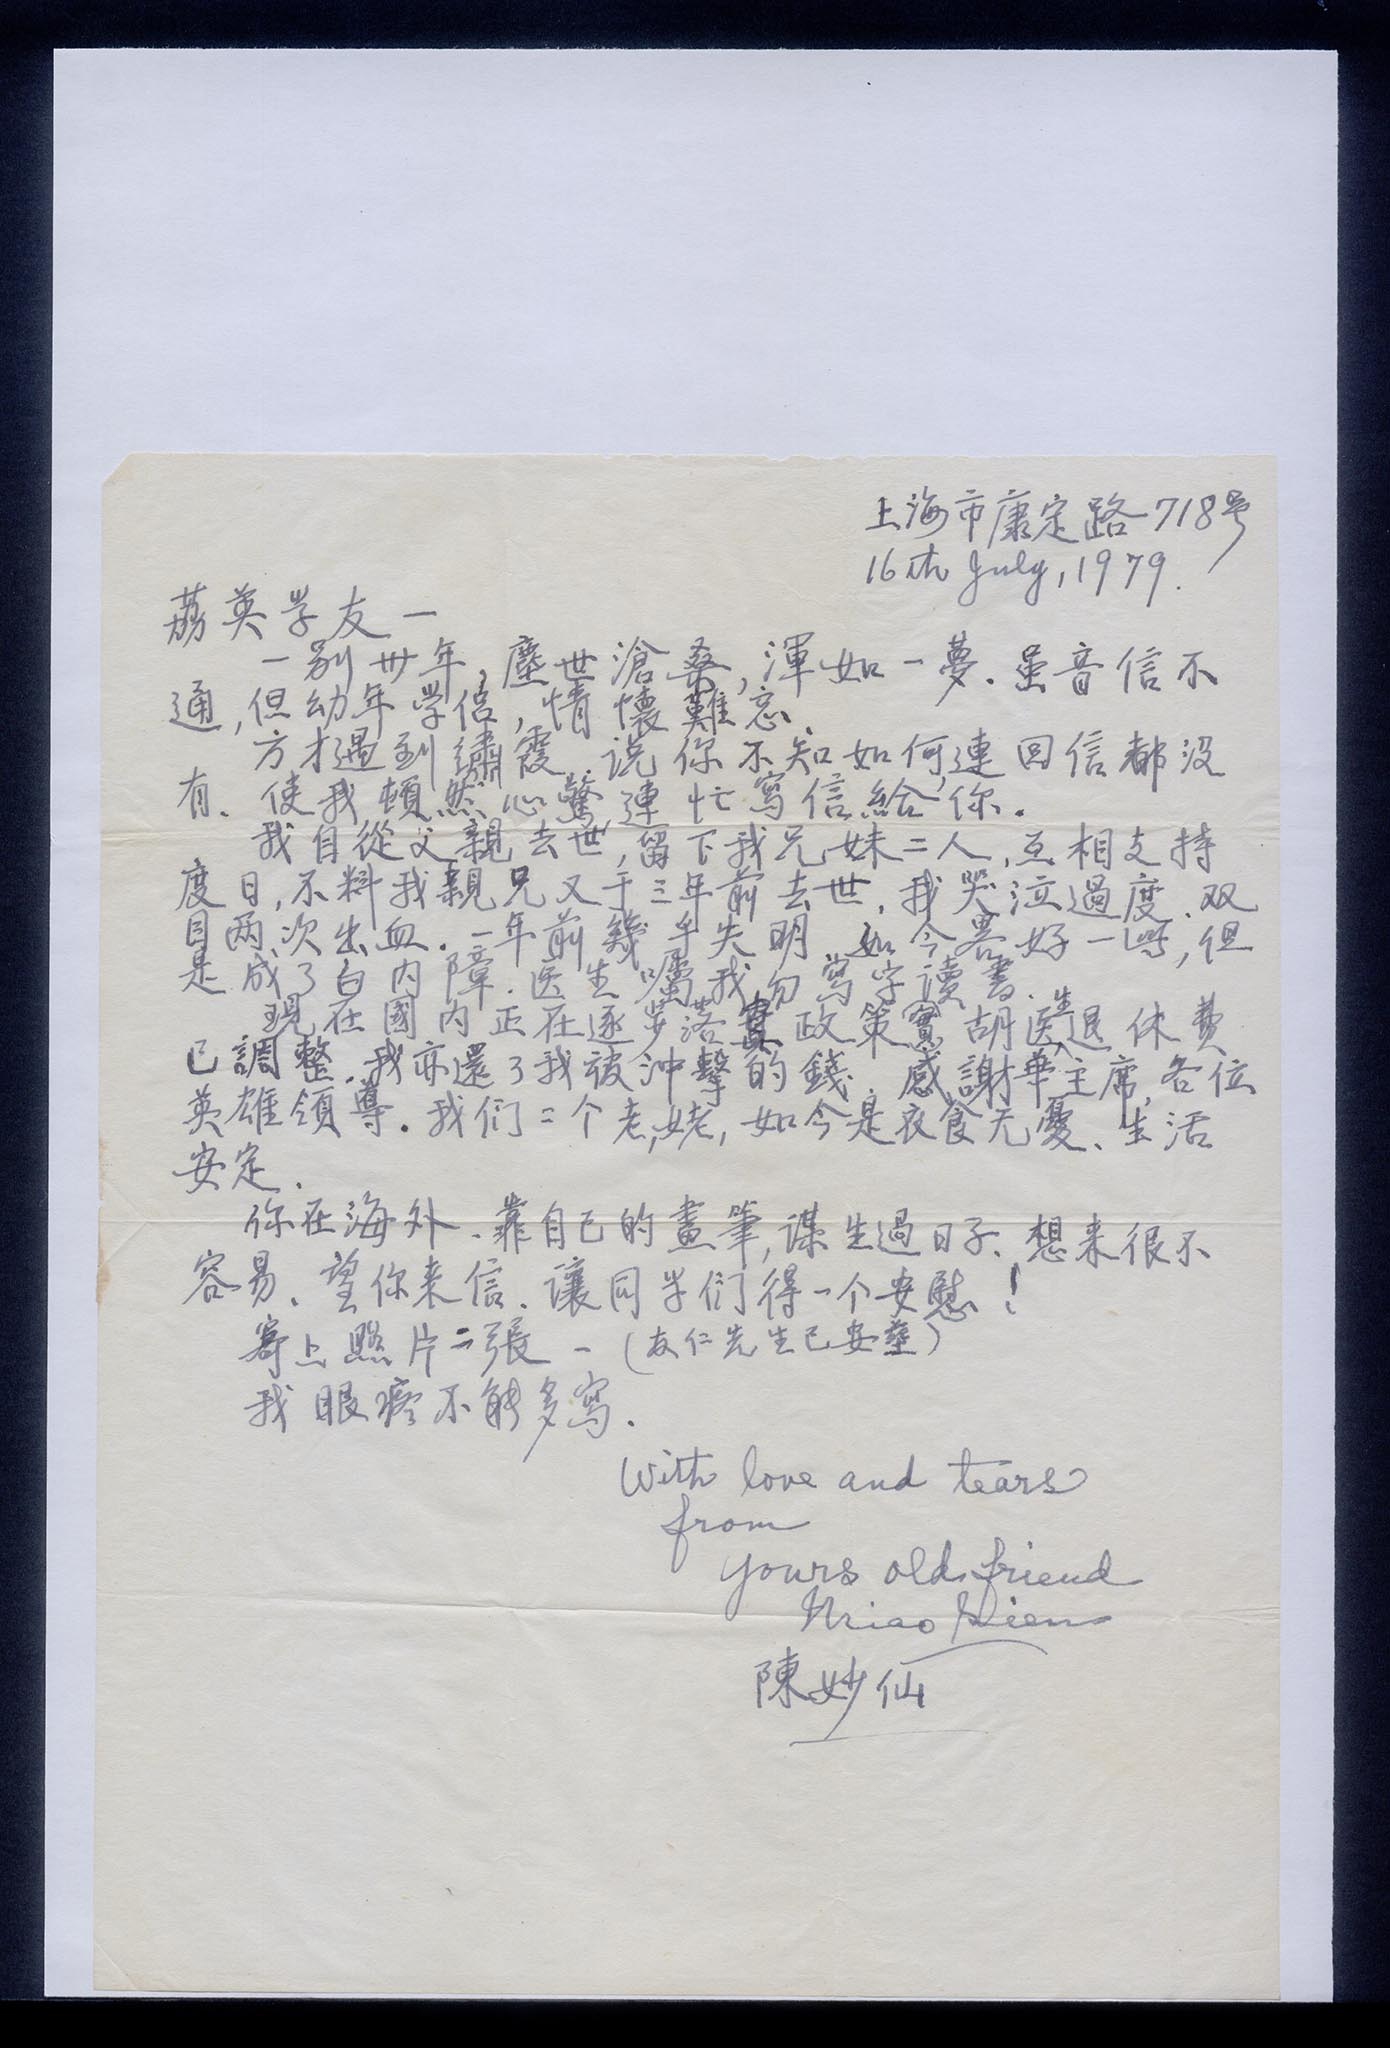 上海市康定路718号
16th July, 1979.
荔英学友—
一别卅年,塵世滄桑,渾如一夢.虽音信不
通,但幼年学侣,情懷難忘.
方才遇到繡霞.说你不知如何,連回信都没
有.使我頓然心驚,連忙寫信給你.
我自從父親去世,留下我兄妹二人,互相支持
度日,不料我親兄又于三年前去世.我哭泣過度.双
目两次出血.一年前幾乎失明.如今畧好一些,但
是成了白内障.医生囑我勿寫字讀書.
現在國内正在逐步落實政策.胡医生退休費
已調整.我亦還了我被沖擊的錢.感謝華主席,各位
英雄領導.我们二个老姥,如今是衣食无憂、生活
安定.
你在海外、靠自己的畫筆,謀生過日子、想来很不
容易、望你来信.讓同学们得一个安慰!
寄上照片二張—(友仁先生已安葬)
我眼疼不能多寫.
With love and tears
from
yours old friend
Miao Sien
陳妙仙